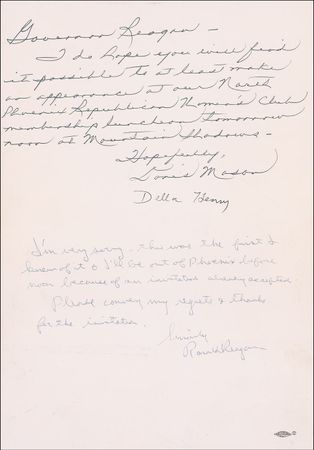 Governor Reagan –
I do hope you will find
it possible to at least make
an appearance at our North
Phoenix Republican Women's Club
membership luncheon tomorrow
noon at Mountain Shadows –
Hopefully,
Mason
Della Henry
I'm very sorry – this was the first I
knew of it & I'll be out of Phoenix before
noon because of an invitation already accepted.
Please convey my regrets & thanks
for the invitation.
Sincerely
Ronald Reagan